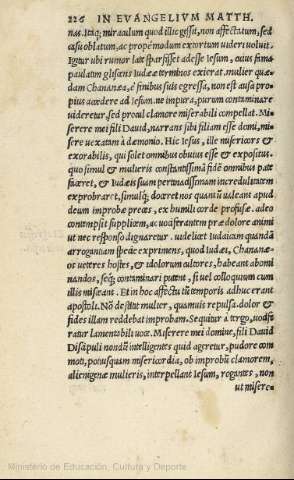 226 IN EVANGELIVM MATTH.
nas. Itaq; miraculum quod illic gessit, non affectatum, sed
casu oblatum, ac propemodum extortum videri voluit.
Igitur ubi rumor late sparsisset adesse Iesum, cuius fima
paulatim gliscens Iudææ terminos exierat, mulier quæ
dam Chananæa, è finibus suis egressa, non est ausa pro
pius accedere ad Iesum, ne impura, purum contaminare
videretur, sed procul clamore miserabili compellat. Mi
serere mei fili David, narrans sibi filiam esse domi, mise
rere vexatam à dæmonio. Hic Iesus, ille misericors &
exorabilis, qui solet omnibus obvius esse & expositus.
quo simul & mulieris constantissimã fidẽ omnibus pate
faceret, & Iudæis suam pertinacissimam incredulitatem
exprobraret, simulq; doceret nos quantũ valeant apud
deum improbæ preces, ex humili corde profusæ. adeo
contempsit supplicem, ac vociferantem præ dolore animi
ut nec responso dignaretur. videlicet Iudaicam quandã
arrogantiam specie exprimens, quod Iudæi, Chananæ-
os veteres hostes, & idolorum cultores, habeant abomi
nandos, seq; contaminari putent, si vel colloquium cum
illis misceant. Et in hoc affectu tũ temporis adhuc erant
apostoli. Nõ destitit mulier, quamvis repulsa. dolor &
fides illam reddebat improbam. Sequitur à tergo, vocife
ratur lamentabili voce. Miserere mei domine, fili David
Discipuli nondũ intelligentes quid ageretur, pudore com
moti, potiusquam misericordia, ob improbũ clamorem,
alienigenæ mulieris, interpellant Iesum, rogantes, non
ut misere-
Ministerio de Educación, Cultura y Deporte